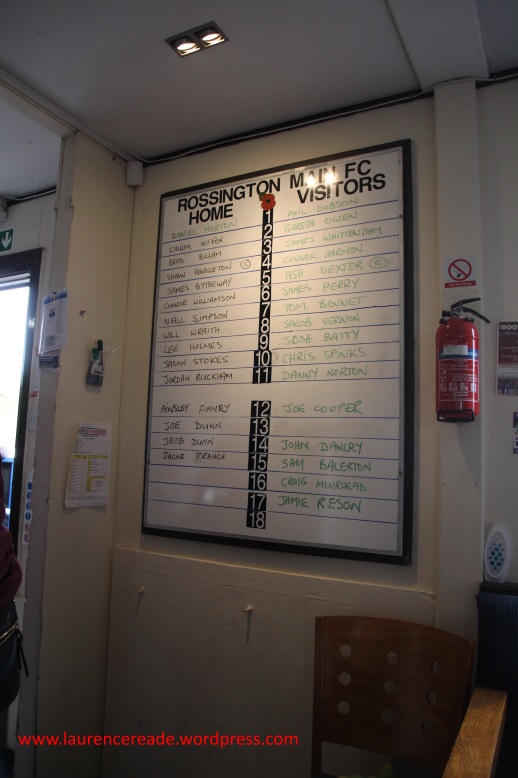 ROSSINGTON MAIN FC
HOME VISITORS
DANIEL MORTON 1 PHIL DOBSON
CALUM WIFFEN 2 GARETH OWEN
BRAD BILLAM 3 JAMES WHITTENHAM
SHAWN PENDLETON (C) 4 CONNOR HARMON
JAMES BYTHEWAY 5 ASH DEXTER (C)
CONNOR WILLIAMSON 6 JAMES PERRY
NIALL SIMPSON 7 TOM BENNET
WILL WRAITH 8 JACOB VERNON
LEE HOLMES 9 JOSH BATTY
JASON STOKES 10 CHRIS SPINKS
JORDAN BUCKHAM 11 DANNY NORTON
AINSLEY FINNEY 12 JOE COOPER
JOE DUNN 13
JACOB DUNN 14 JOHN DAWLRY
JACOB FRANCE 15 SAM BALERTON
16 CRAIG MUIRHEAD
17 JAMIE RESON
18
www.laurencereade.wordpress.com